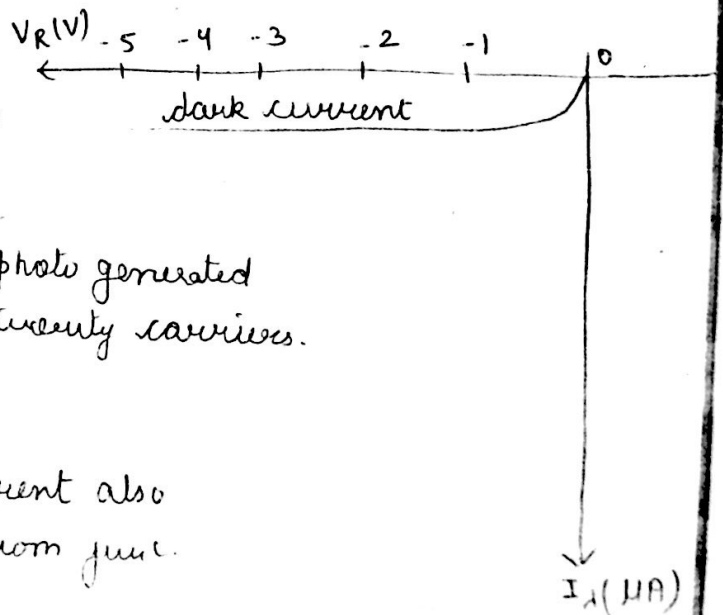 V_R(V) -5 -4 -3 -2 -1 0
dark current
photo generated
carriers.
rent also
rom junc.
I_λ(μA)